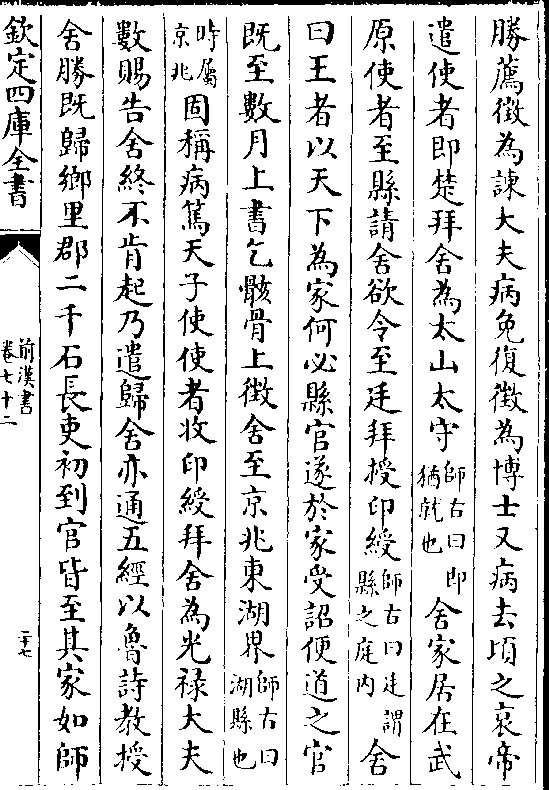 勝薦徵為諫大夫病免復徵為博士又病去頃之哀帝
遣使者即楚拜舍為太山太守師古曰即猶就也舍家居在武
原使者至縣請舍欲令至廷拜授印綬師古曰廷謂縣之庭内舍
曰王者以天下為家何必縣官遂於家受詔便道之官
既至數月上書乞骸骨上徵舍至京兆東湖界師古曰湖縣也
時屬京兆固稱病篤天子使使者收印綬拜舍為光禄大夫
數賜告舍終不肯起乃遣歸舍亦通五經以魯詩教授
舍勝既歸鄉里郡二千石長吏初到官皆至其家如師
欽定四庫全書
前漢書
卷七十二
二十七